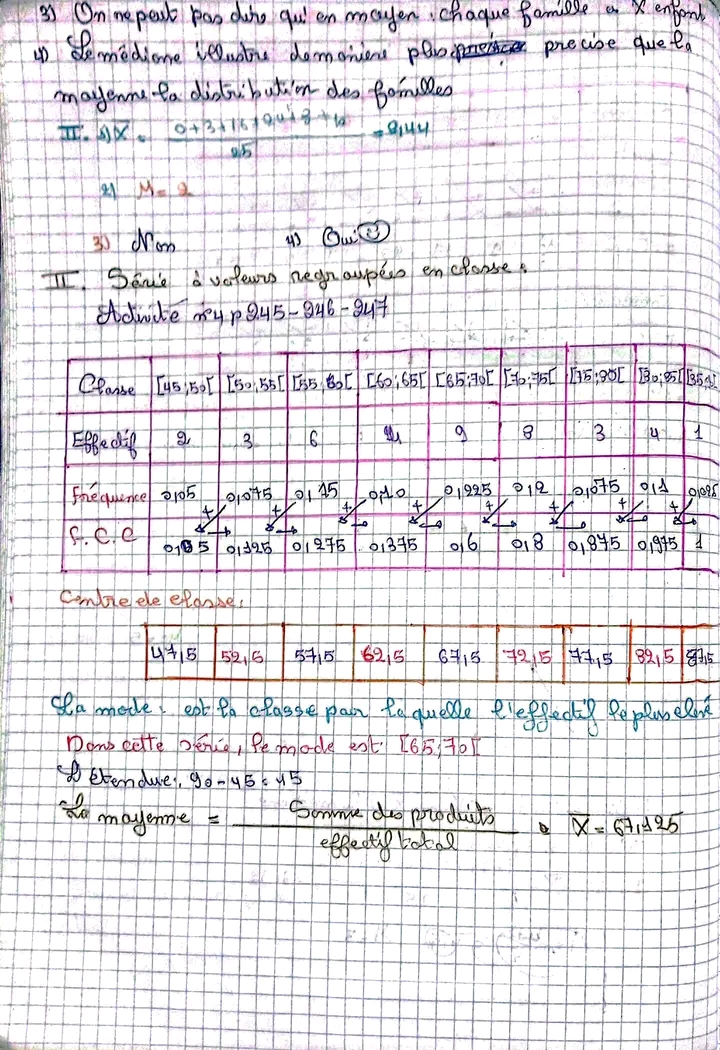 3) On ne peut pas dire qu'en moyen, chaque famille a X enfants
4) Le médiane illustre de maniere plus precise que la
moyenne la distribution des familles
II. 1) X̄ = 0+3+16+24+8+10 / 25 = 2,44
2) M = 2
3) Non 4) Oui
II. Série à valeurs regroupées en classe :
Activité n°4 p 245-246-247
Classe [45;50[ [50;55[ [55;60[ [60;65[ [65;70[ [70;75[ [75;80[ [80;85[ [85;
Effectif 2 3 6 4 9 8 3 4 1
fréquence 0,05 0,075 0,15 0,10 0,225 0,2 0,075 0,1 0,025
F.C.C 0,05 0,125 0,275 0,375 0,6 0,8 0,875 0,975 1
Centre de classe :
47,5 52,5 57,5 62,5 67,5 72,5 77,5 82,5 87,5
La mode : est la classe par laquelle l'effectif le plus elevé
Dans cette série, le mode est [65;70[
L'étendue : 90-45 = 45
La moyenne = Somme des produits / effectif total X̄ = 67,125